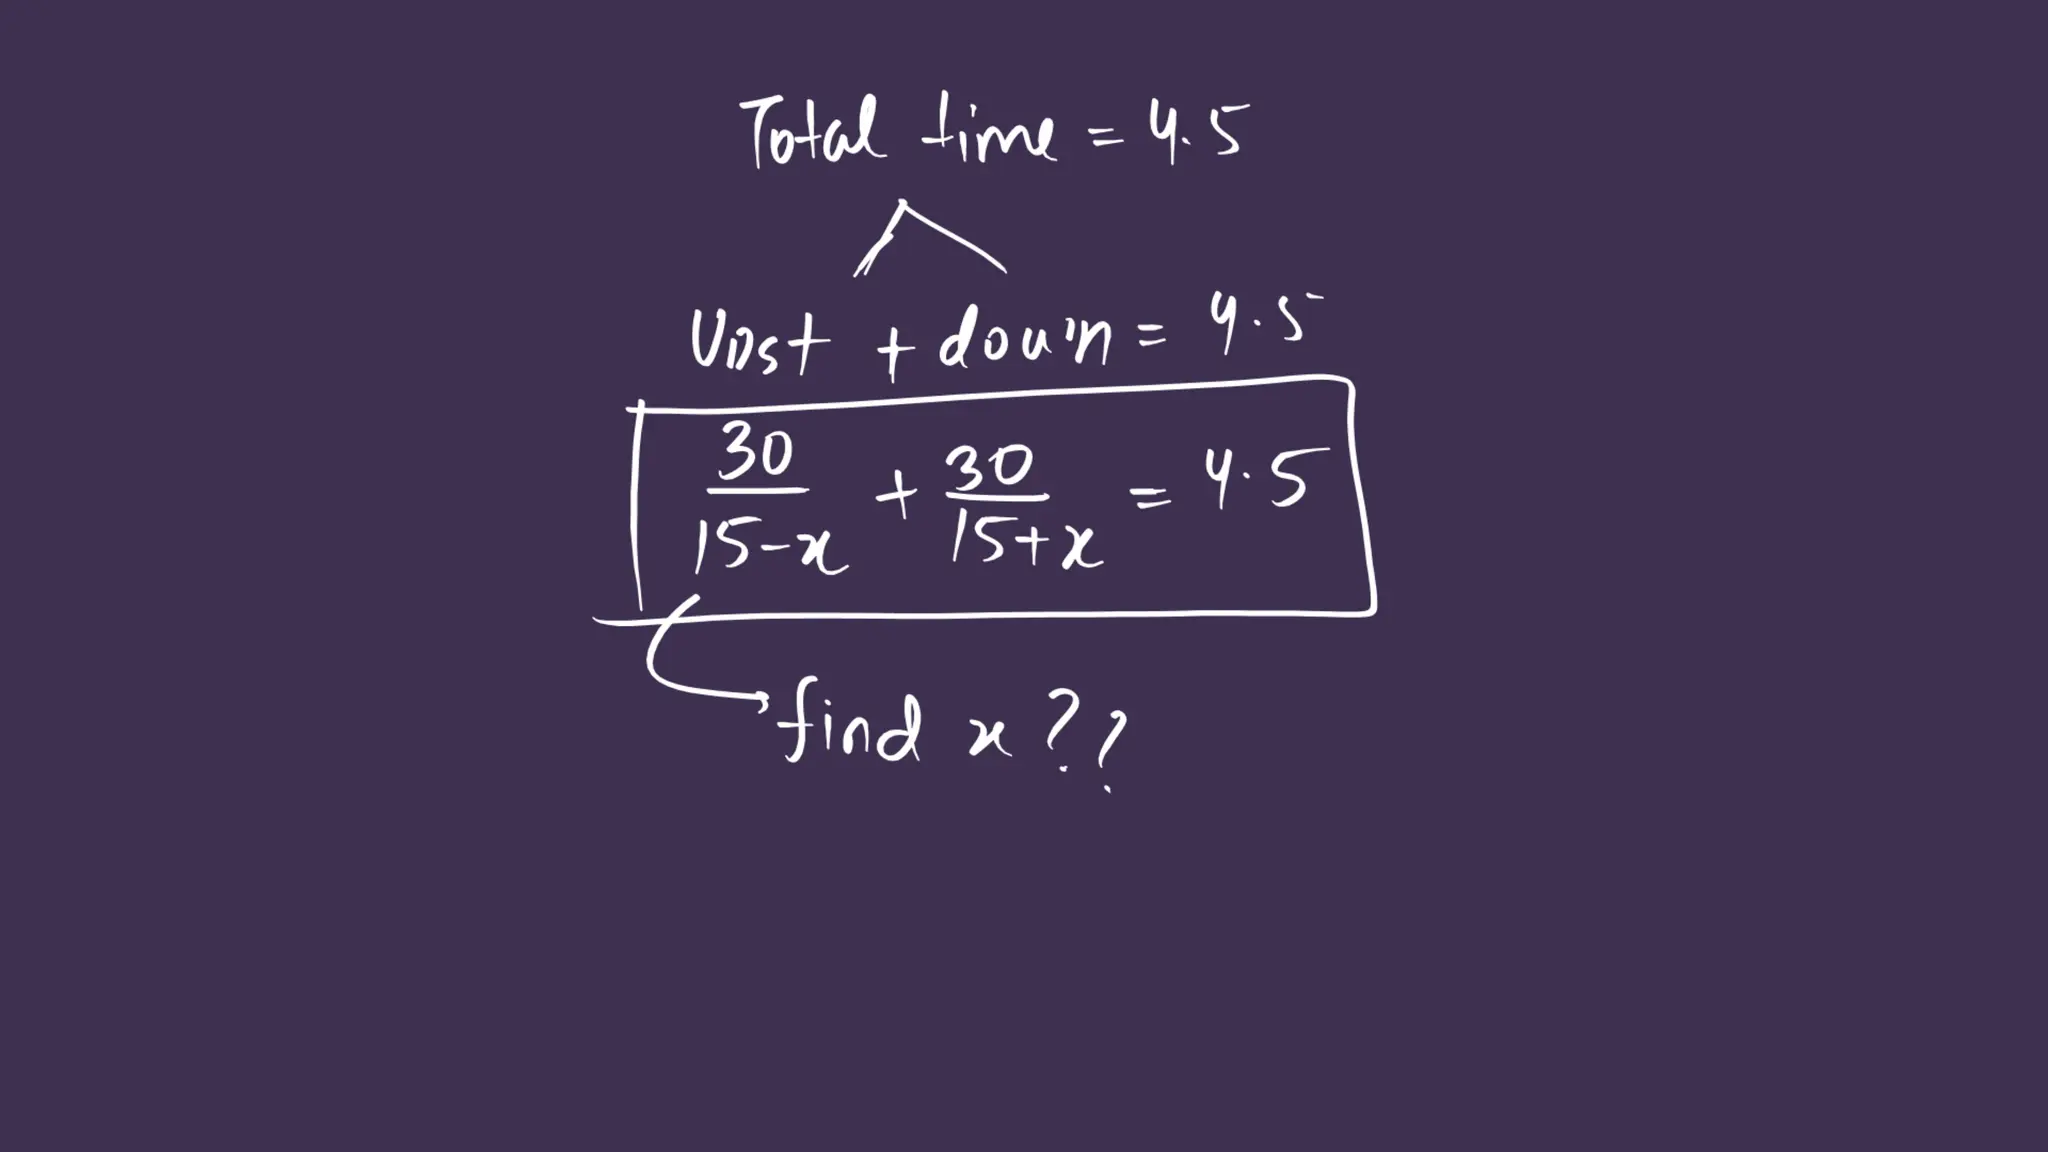 Total time = 4.5
Upst + down = 4.5
30/15-x + 30/15+x = 4.5
find x??